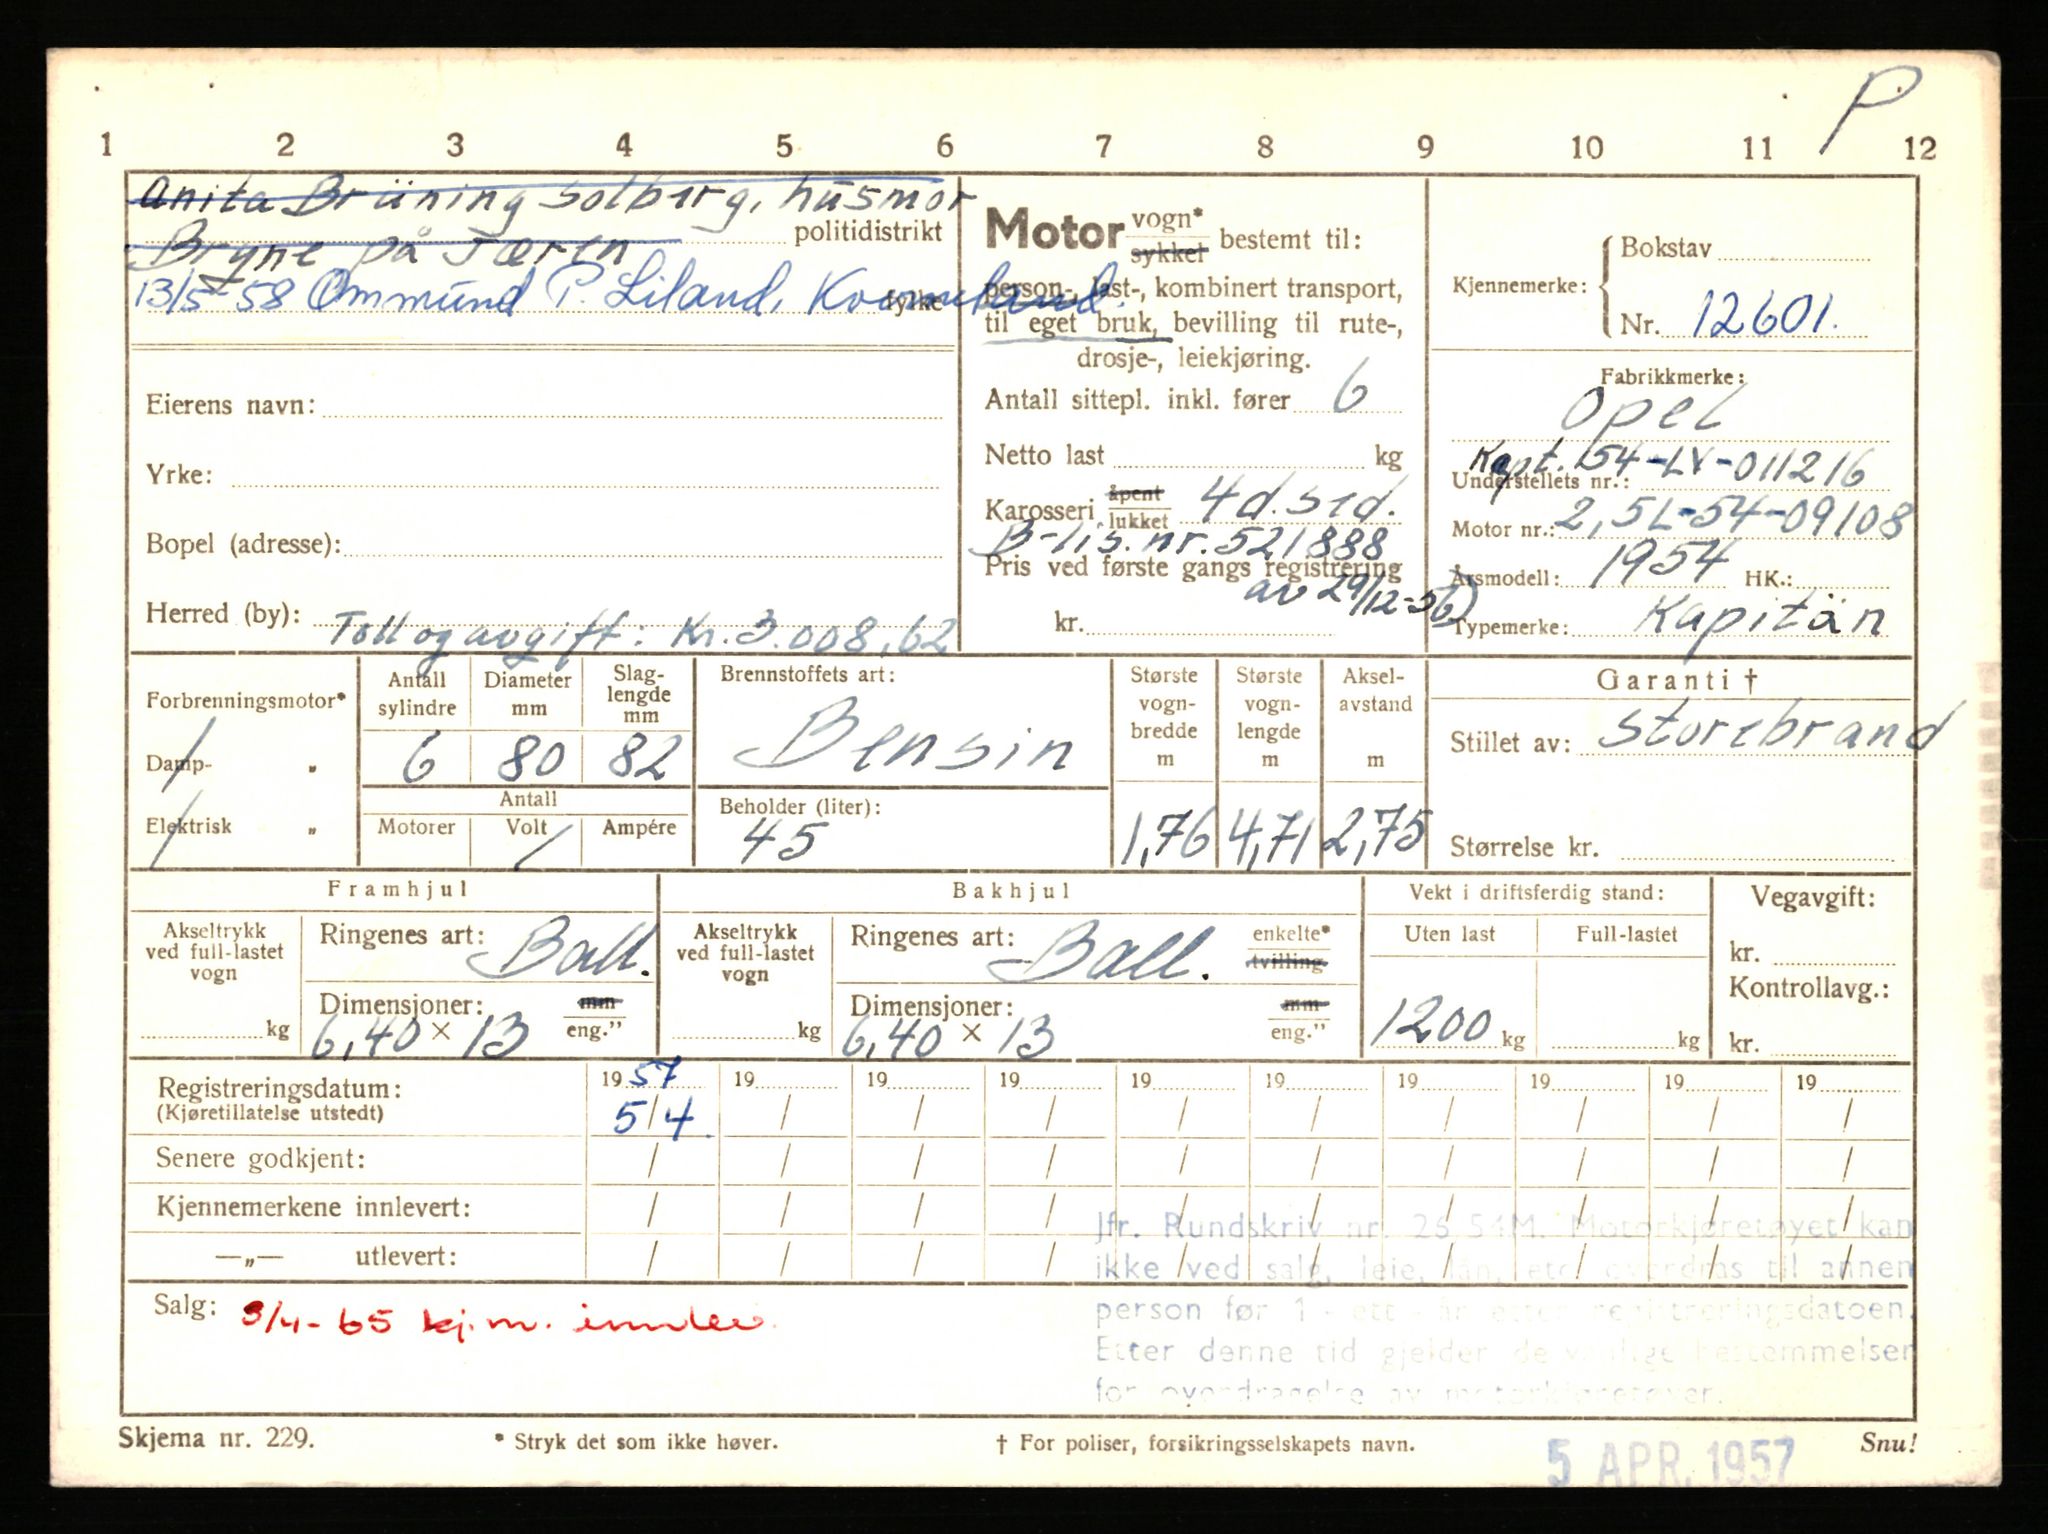 P
1 2 3 4 5 6 7 8 9 10 11 12
Anita Brüning Solberg, husmor
politidistrikt
Bryne på Jæren
13/5-58 Ommund P. Liland, Kvernaland.
fylke
Eierens navn:
Yrke:
Bopel (adresse):
Herred (by):
Toll og avgift: Kr. 3.008,62
Motor vogn* sykkel bestemt til:
person-, last-, kombinert transport,
til eget bruk, bevilling til rute-,
drosje-, leiekjøring.
Antall sittepl. inkl. fører 6
Netto last kg
Karosseri åpent lukket 4d. sed.
B-lis. nr. 521888
Pris ved første gangs registrering
av 29/12-56)
kr.
Kjennemerke: Bokstav
Nr. 12601.
Fabrikkmerke:
Opel
Kapt. 54-LV-011216
Understellets nr.:
Motor nr.: 2,5L-54-09108
Årsmodell: 1954 HK.:
Typemerke: Kapitän
Forbrenningsmotor*
Damp- „
Elektrisk „
Antall sylindre Diameter mm Slag-lengde mm
6 80 82
Antall
Motorer Volt Ampére
Brennstoffets art:
Bensin
Beholder (liter):
45
Største vogn-bredde m Største vogn-lengde m Aksel-avstand m
1,76 4,71 2,75
Garanti †
Stillet av: Storebrand
Størrelse kr.
Framhjul
Akseltrykk ved full-lastet vogn
kg
Ringenes art: Ball.
Dimensjoner: mm
6,40 × 13 eng."
Bakhjul
Akseltrykk ved full-lastet vogn
kg
Ringenes art: Ball. enkelte* tvilling
Dimensjoner: mm
6,40 × 13 eng."
Vekt i driftsferdig stand:
Uten last Full-lastet
1200 kg kg
Vegavgift:
kr.
Kontrollavg.:
kr.
Registreringsdatum: 19 57 19 19 19 19 19 19 19 19 19
(Kjøretillatelse utstedt) 5/4 / / / / / / / / /
Senere godkjent: / / / / / / / / / /
Kjennemerkene innlevert: / / / / / / / / / /
—„— utlevert: / / / / / / / / / /
Jfr. Rundskriv nr. 26 54M. Motorkjøretøyet kan
ikke ved salg, leie, lån, etc. overdras til annen
person før 1 - ett - år etter registreringsdatoen.
Etter denne tid gjelder de vanlige bestemmelser
for overdragelse av motorkjøretøyer.
Salg: 3/4-65 kj.m. innlev.
Skjema nr. 229. * Stryk det som ikke høver. † For poliser, forsikringsselskapets navn. Snu!
5 APR. 1957